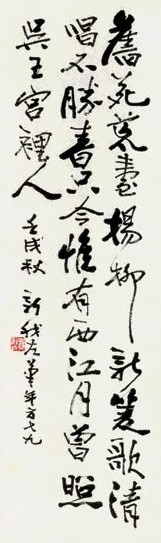 舊苑荒臺楊柳新菱歌清
唱不勝春只今惟有西江月曾照
吳王宮裡人 壬戌秋 新我左筆年方七九